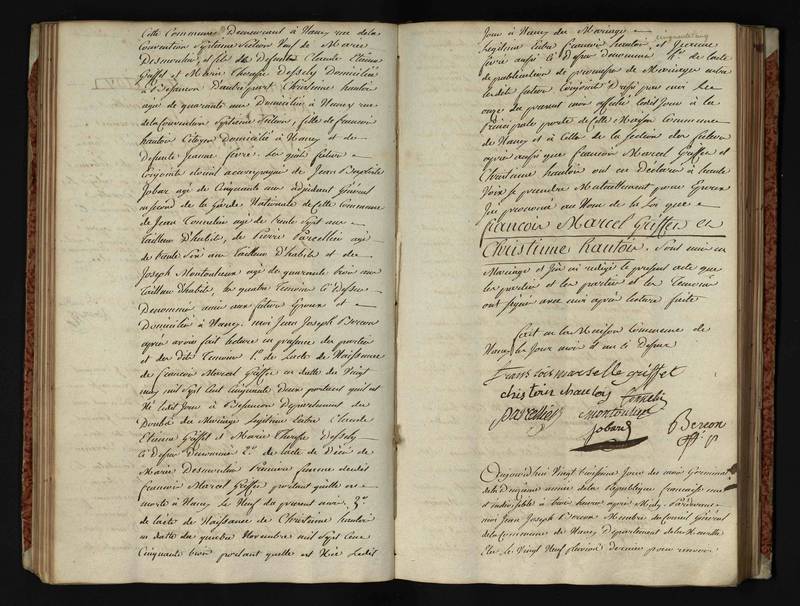 Cette Commune Demeurant à Nancy rue de la
Convention Septieme Section Veuf de Marie
Desmoulin, et fils de Defunts Claude Etienne
Griffet et Marie Therese Dessoly Domiciliée
à Besançon D'autre part Christinne hautoir
agée de quarante ans Domiciliée à Nancy rue
de la Convention Septieme Section, fille de francois
hautoir Citoyen Domicilié à Nancy et de
Defunte Jeanne fevre. Les quels futurs
Conjoints etoient accompagnés de Jean Baptiste
Jobar agé de Cinquante ans adjudant Général
de la Garde Nationale de Cette Commune
de Jean agé de trente Sept ans
Tailleur D'habits, de Pierre Parcellier agé
de trente Six ans Tailleur D'habits et de
Joseph Montoulieux agé de quarante trois ans
Tailleur D'habits, les quatre Temoins Ci Dessus
Denommés amis aux futurs Epoux et
Domiciliés à Nancy. moi Jean Joseph Bereon
après avoir fait lecture en presence des parties
et des dits Temoins 1º de l'acte de Naissance
de francois Marcel Griffet en datte du Vingt
may mil Sept Cent Cinquante Deux portant qu'il est
Né ledit Jour à Besançon Departement du
Doubs du Mariage Legitime Entre Claude
Etienne Griffet et Marie Therese Dessoly
Ci Dessus Denommés 2º de l'acte de Décès de
Marie Desmoulin Premiere femme dudit
francois Marcel Griffet portant qu'elle est
morte à Nancy le Neuf du present mois. 3º
de l'acte de Naissance de Christinne hautoir
en datte du quinze Novembre mil Sept Cent
Cinquante trois portant qu'elle est Née Ledit
Jour à Nancy du Mariage
Legitime Entre francois hautoir et Jeanne
fevre aussi Ci Dessus denommés 4º de l'acte
de publication de promesse de Mariage entre
lesdits futurs Conjoints Dressé par moi le
onze du present mois affiché ledit Jour à la
Principale porte de Cette Maison Commune
de Nancy et à Celle de la Section des futurs
après aussi que francois Marcel Griffet et
Christinne hautoir ont eu Déclaré à haute
Voix se prendre Mutuellement pour Epoux
J'ai prononcé au Nom de la Loi que
francois Marcel Griffet et
Christinne hautoir. Sont unis en
Mariage et J'ai redigé le present acte que
les parties et les Temoins
ont Signé avec moi après lecture faite
fait en la Maison Commune de
Nancy les Jour mois et an Ci Dessus
fransois marselle griffet
christin hautoy
parcellier Montoulieux
Jobard Bereon
Aujourd'hui Vingt Troisieme Jour du mois Germinal
de la Deuxieme année de la République francaise une
et indivisible à trois heures après Midy. Pardevant
moi Jean Joseph Bereon Membre du Conseil Général
de la Commune de Nancy Departement de la Meurthe
Elu le Vingt Neuf pluviose dernier pour recevoir